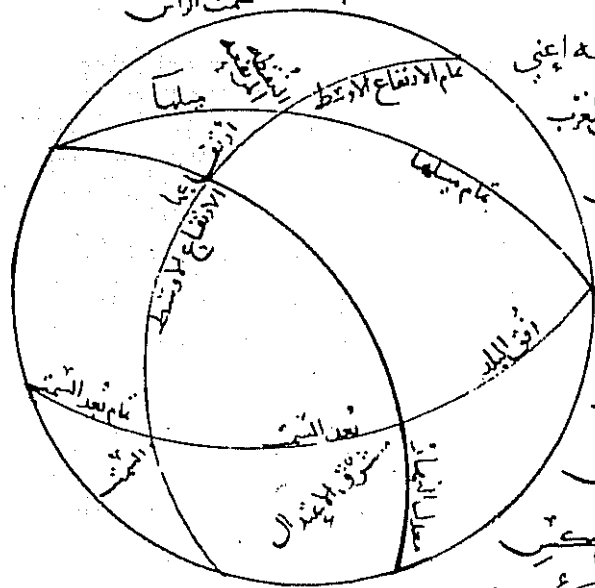 سمت الرأس
ه إعني
لمغرب
تمام الارتفاع الاوسط
النقطة
المرتفعة
ميلها
ارتفاعها
الارتفاع الاوسط
تمام ميلها
افق البلد
تمام بعد السمت
بعد السمت
السمت
مشرق الاعتدال
معدل النهار